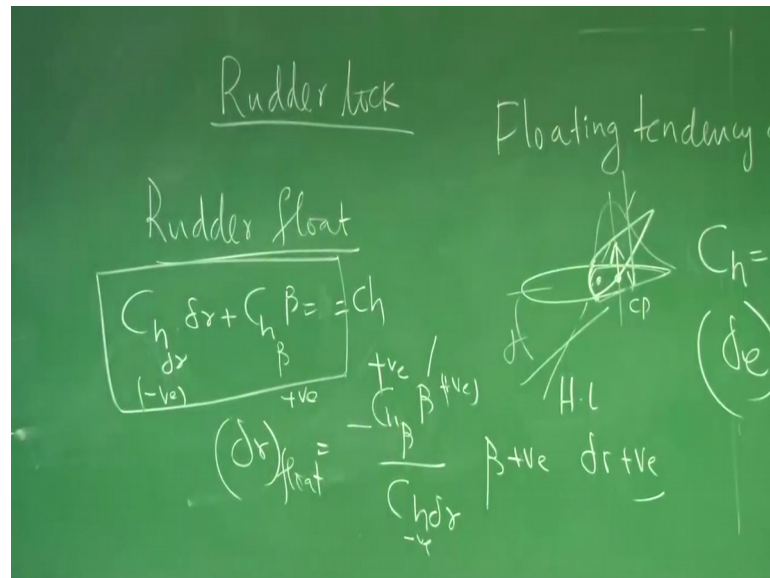 Rudder lock
Floating tendency
Rudder float
C_h_δr δr + C_h_β β = = Ch
(-ve) +ve
CP
H.L
C_h =
(δe
+ve
(δr)_float = - C_h_β β (+ve) / C_h_δr
-ve
β +ve δr +ve